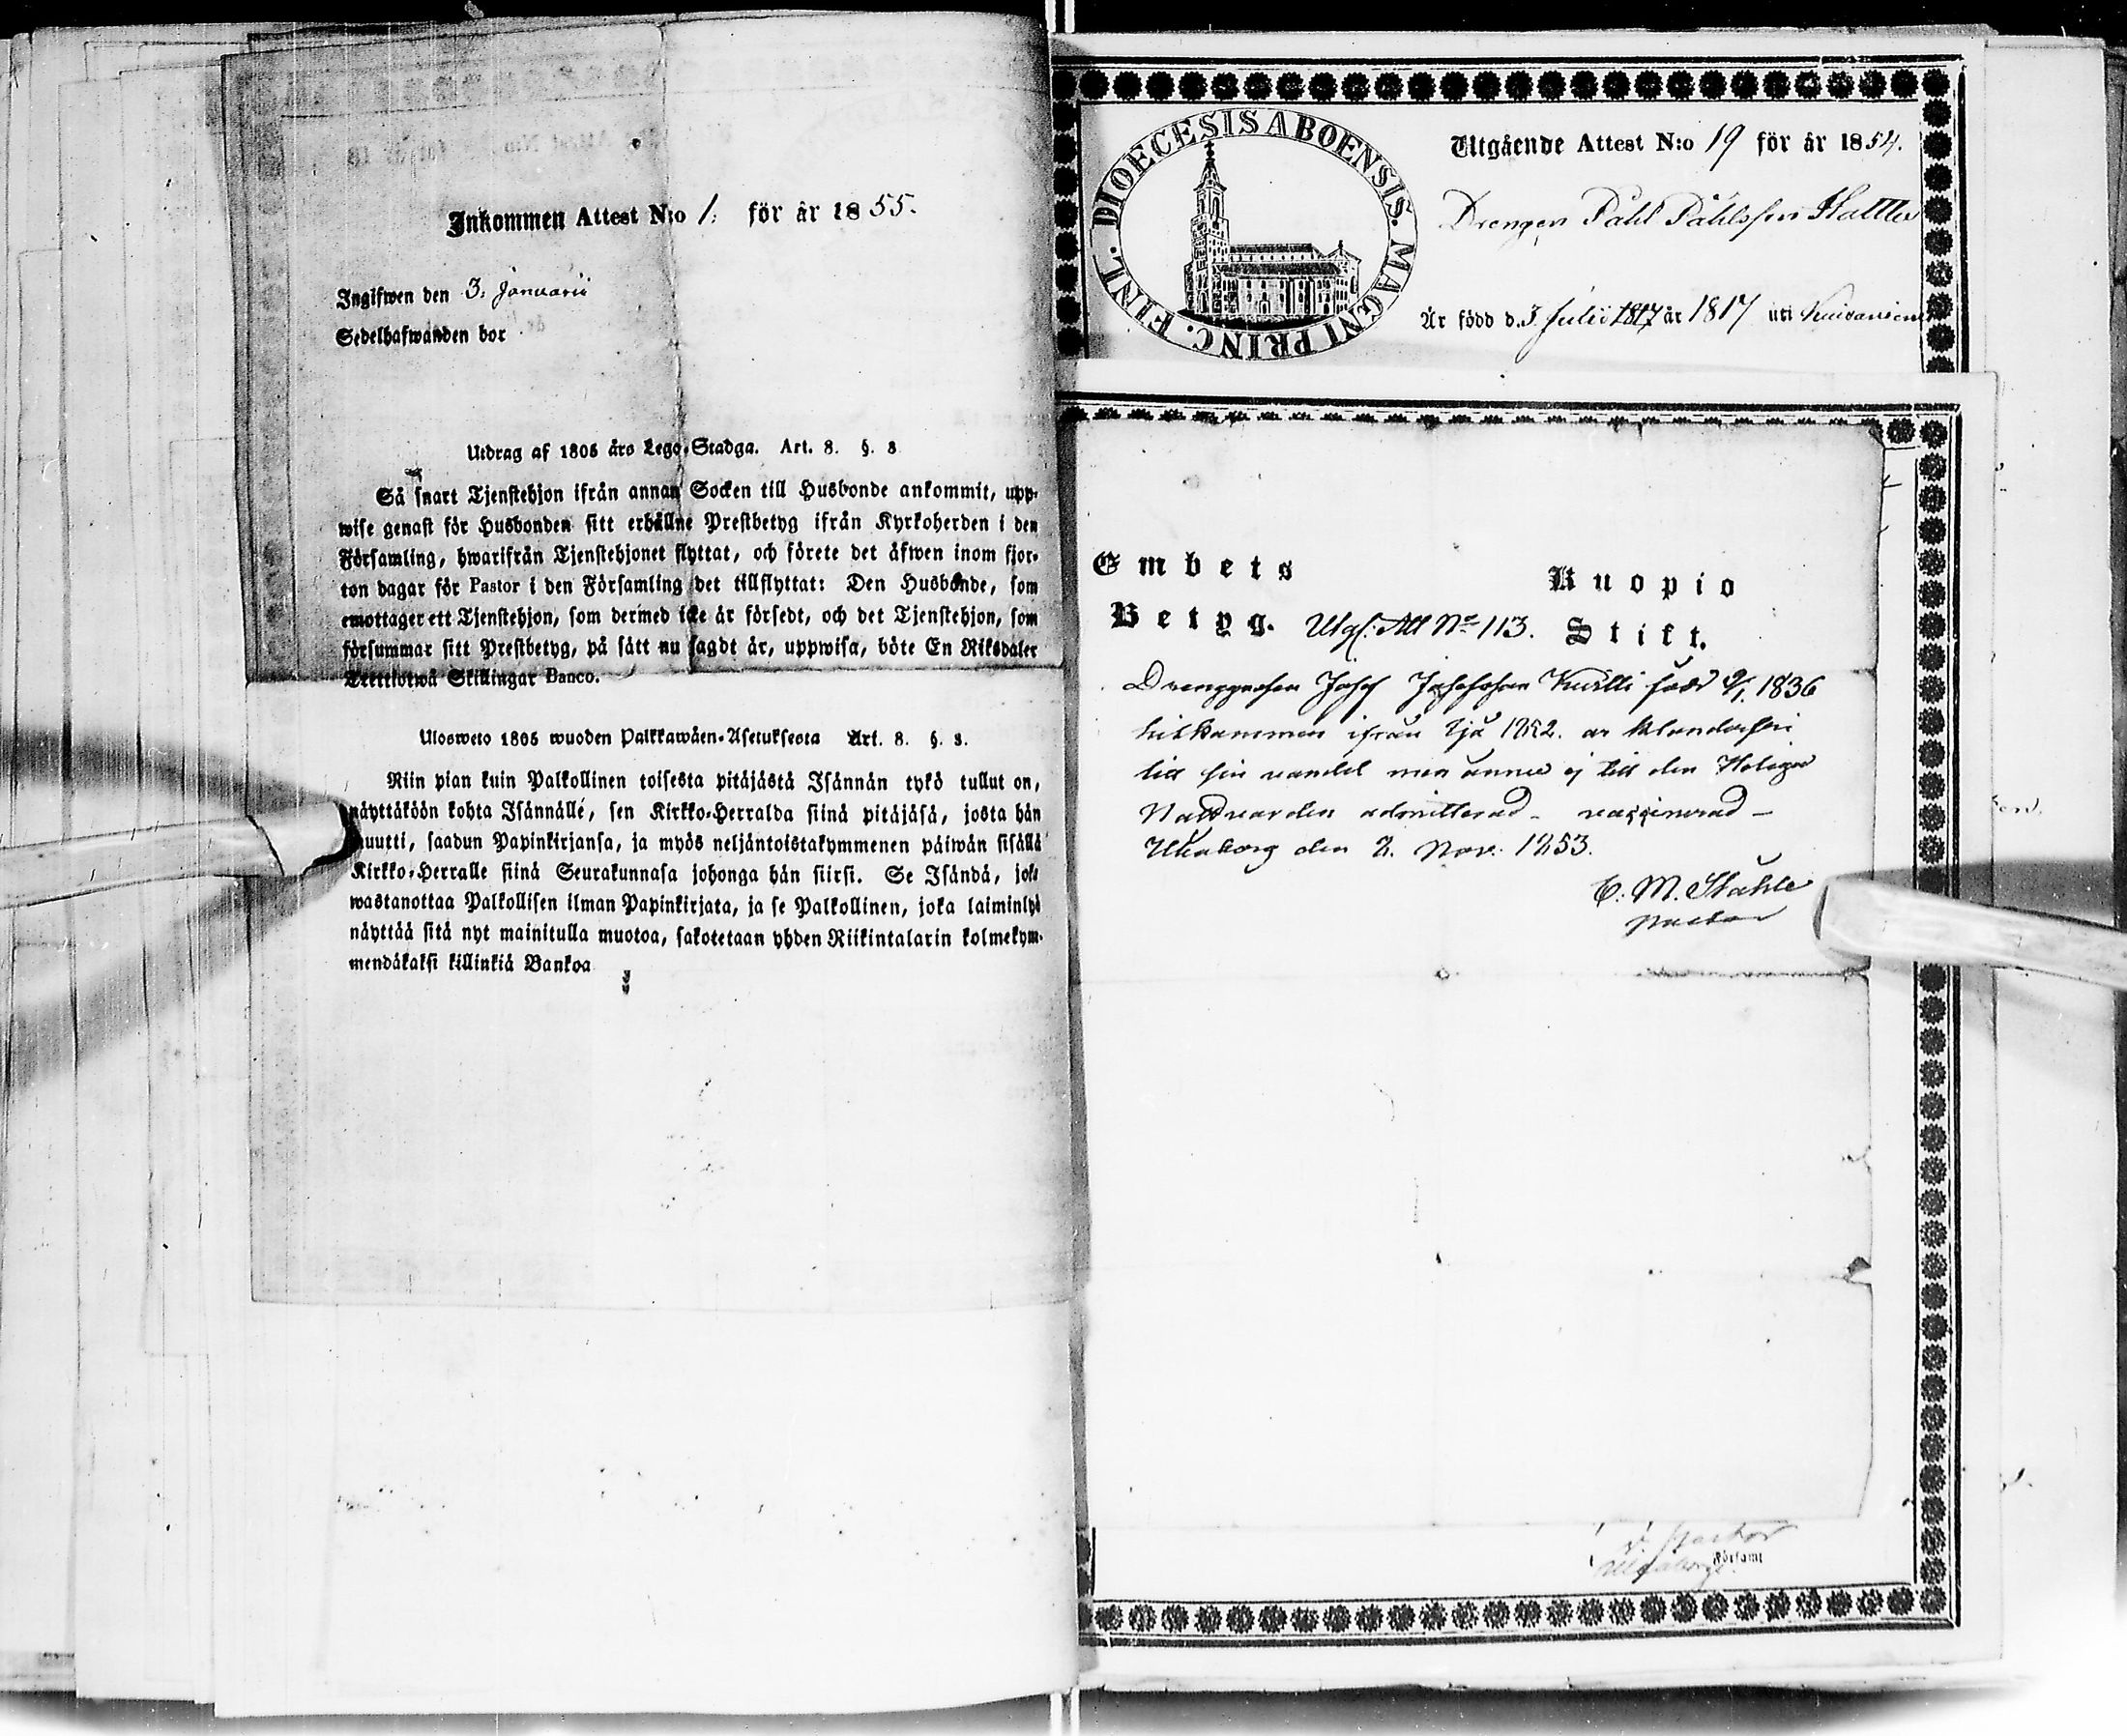 Inkommen Attest N:o 1. för år 1855.
Ingifwen den 3. Januarii
Sedelhafwanden bor
Utdrag af 1805 års Lego-Stadga. Art. 8. §. 8
Så snart Tjenstehjon ifrån annan Socken till Husbonde ankommit, upp-
wise genast för Husbonden sitt erhållne Prestbetyg ifrån Kyrkoherden i den
Församling, hwarifrån Tjenstehjonet flyttat, och förete det äfwen inom fjor-
ton dagar för Pastor i den Församling det tillflyttat: Den Husbonde, som
emottager ett Tjenstehjon, som dermed icke är försedt, och det Tjenstehjon, som
försummar sitt Prestbetyg, på sätt nu sagdt är, uppwisa, böte En Riksdaler
Trettiotwå Skillingar Banco.
Ulosweto 1805 wuoden Palkkawäen-Asetuksesta Art. 8. §. 8.
Niin pian kuin Palkollinen toisesta pitäjästä Isännän tykö tullut on,
näyttäköön kohta Isännälle, sen Kirkko-Herralda siinä pitäjäsä, josta hän
muutti, saadun Papinkirjansa, ja myös neljäntoistakymmenen päiwän sisällä
Kirkko-Herralle siinä Seurakunnasa johonga hän siirsi. Se Isändä, joka
wastanottaa Palkollisen ilman Papinkirjata, ja se Palkollinen, joka laiminlyö
näyttää sitä nyt mainitulla muotoa, sakotetaan yhden Riikintalarin kolmekym-
mendäkaksi killinkiä Bankoa
DIOECESIS ABOENSIS. MAGNI PRINC. FINL.
Utgående Attest N:o 19 för år 1854.
Drengen Påhl Påhlsson
Är född d. 3 Julii 1817 år 1817 uti
Embets Kuopio
Betyg. Utgf. Att No 113. Stift.
Josef Josefsson född 9/1 1836
hitkommen ifrån Ijå 1852. är
till sin vandel men ännu ej till den Heliga
Nattvarden admitterad - vaccinerad -
Uleåborg den 2. Nov. 1853.
C. M. Ståhle
Pastor
v. Pastor
Uleåborgs Församl